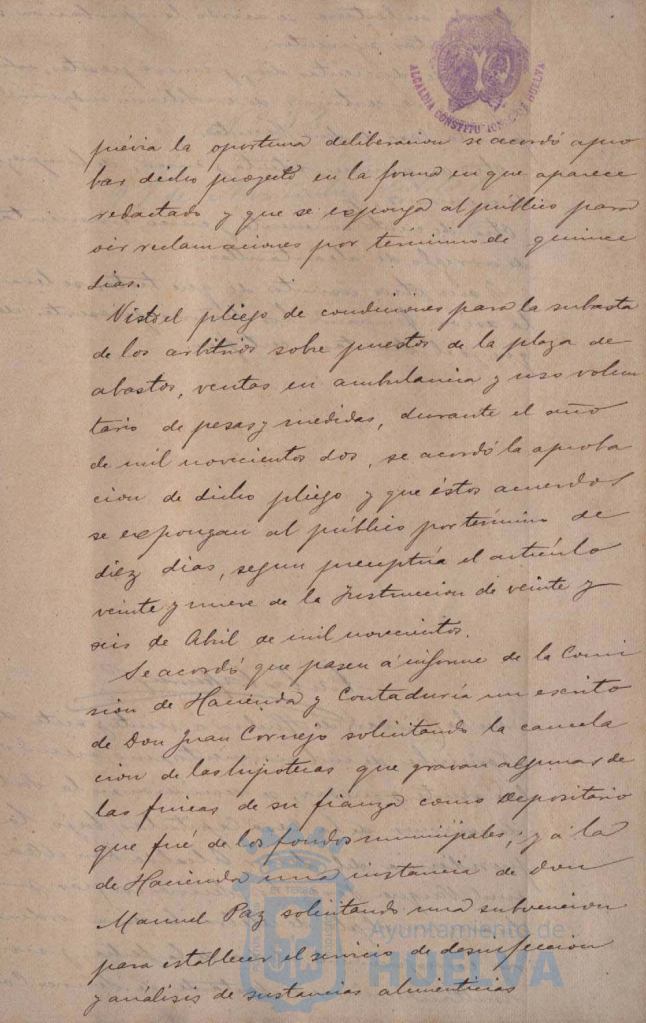 ALCALDIA CONSTITUCIONAL DE HUELVA
prévia la oportuna deliberacion se acordó apro
bar dicho proyecto en la forma en que aparece
redactado y que se exponga al público para
oir reclamaciones por término de quince
dias.
Visto el pliego de condiciones para la subasta
de los arbitrios sobre puestos de la plaza de
abastos, ventas en ambulancia y uso volun
tario de pesas y medidas, durante el año
de mil novecientos dos, se acordó la aproba
cion de dicho pliego y que éstos acuerdos
se expongan al público por término de
diez dias, segun preceptúa el artículo
veinte y nueve de la Instruccion de veinte y
seis de Abril de mil novecientos.
Se acordó que pasen á informe de la Comi
sión de Hacienda y Contaduría un escrito
de Don Juan Cornejo solicitando la cancela
cion de las hipotecas que gravan algunas de
las fincas de su fianza como Depositario
que fué de los fondos municipales; y á la
de Hacienda una instancia de Don
Manuel Paz solicitando una subvencion
para establecer el servicio de desinfeccion
y análisis de sustancias alimenticias
Ayuntamiento de
HUELVA